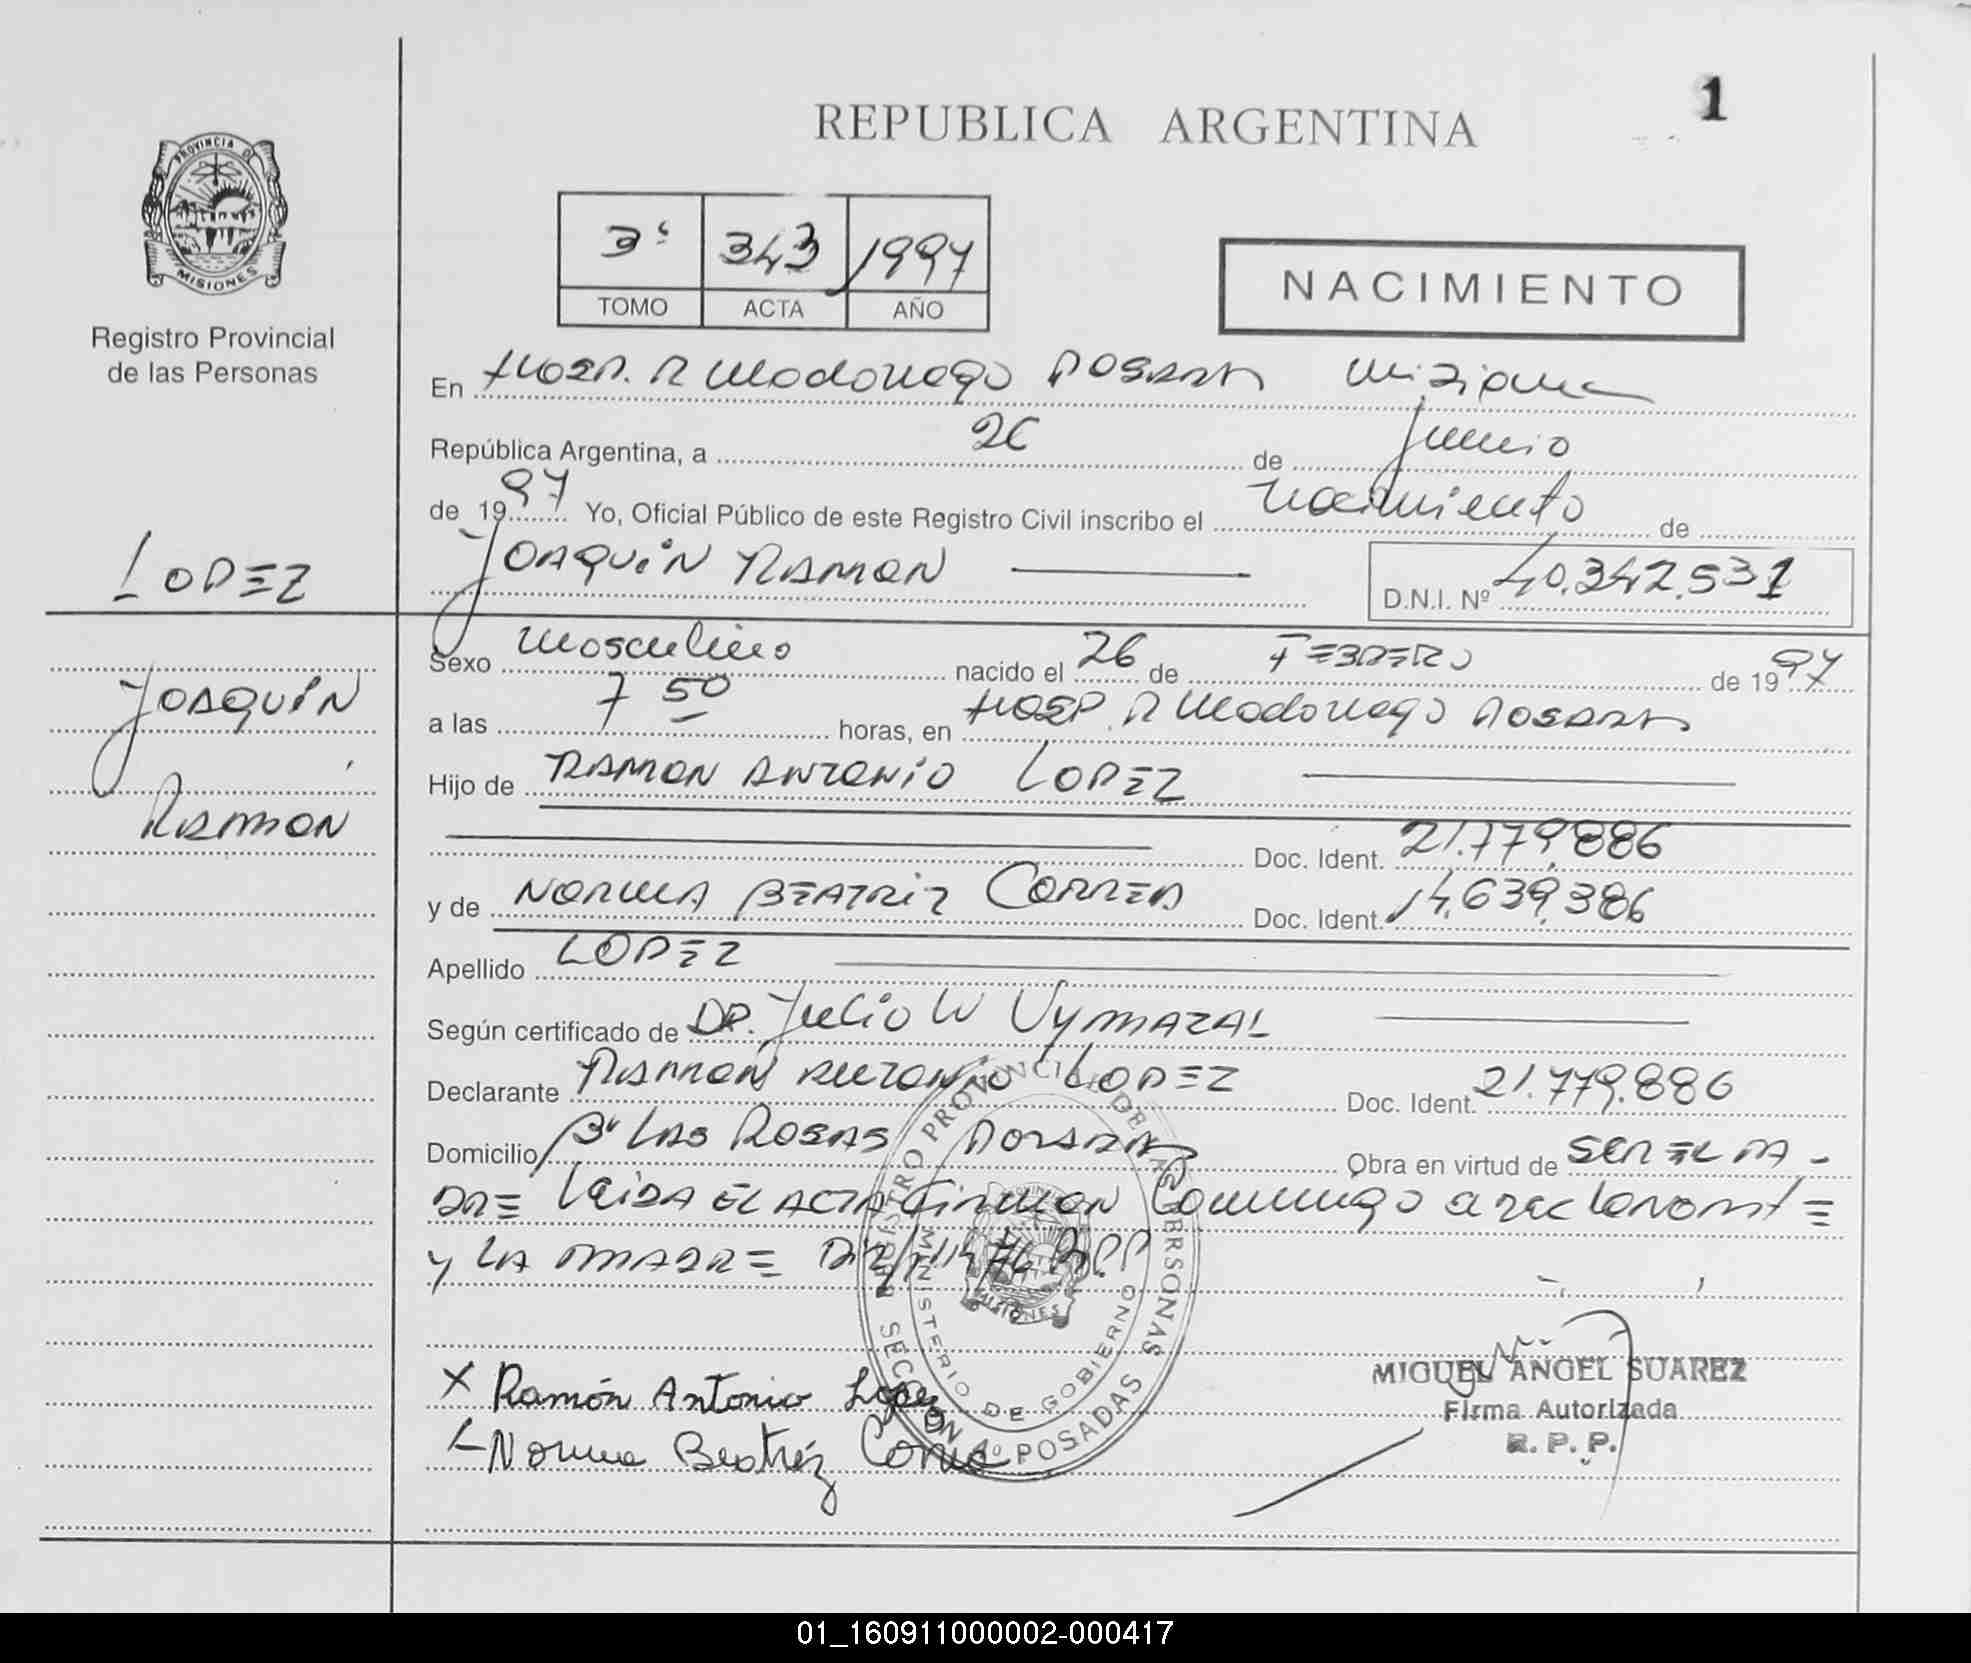 1
REPUBLICA ARGENTINA
PROVINCIA DE
MISIONES
Registro Provincial
de las Personas
3º 343 1997
TOMO ACTA AÑO
NACIMIENTO
En Hosp. R Madariaga Posadas Misiones
República Argentina, a 26 de Junio
de 1997 Yo, Oficial Público de este Registro Civil inscribo el nacimiento de
LOPEZ
JOAQUIN RAMON D.N.I. Nº 40.342.531
JOAQUIN
RAMON
Sexo masculino nacido el 26 de FEBRERO de 1997
a las 7 50 horas, en Hosp. R Madariaga Posadas
Hijo de RAMON ANTONIO LOPEZ
Doc. Ident. 21.779.886
y de NORMA BEATRIZ CORREA Doc. Ident. 14.639.386
Apellido LOPEZ
Según certificado de DR. Julio W VYMAZAL
Declarante RAMON ANTONIO LOPEZ Doc. Ident. 21.779.886
Domicilio Bº LAS ROSAS POSADAS Obra en virtud de SER EL PA-
DRE LEIDA EL ACTA FIRMAN Conmigo el declarante
y LA MADRE
REGISTRO PROVINCIAL DE LAS PERSONAS
MINISTERIO DE GOBIERNO
SECCION 4º POSADAS
X Ramón Antonio Lopez
Norma Beatriz Correa
MIGUEL ANGEL SUAREZ
Firma Autorizada
R. P. P.
01_160911000002-000417